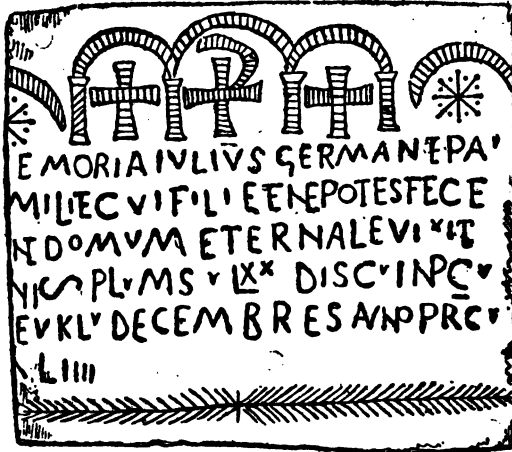 EMORIA IVLIVS GERMANE PA
MILIE CVI FILI ET NEPOTES FECE
NT DOMVM ETERNALE VIXIT
NIS PLVMS V LXX DISC V IN PC V
E V KL V DECEMBRES ANNO PRC V
LIIII